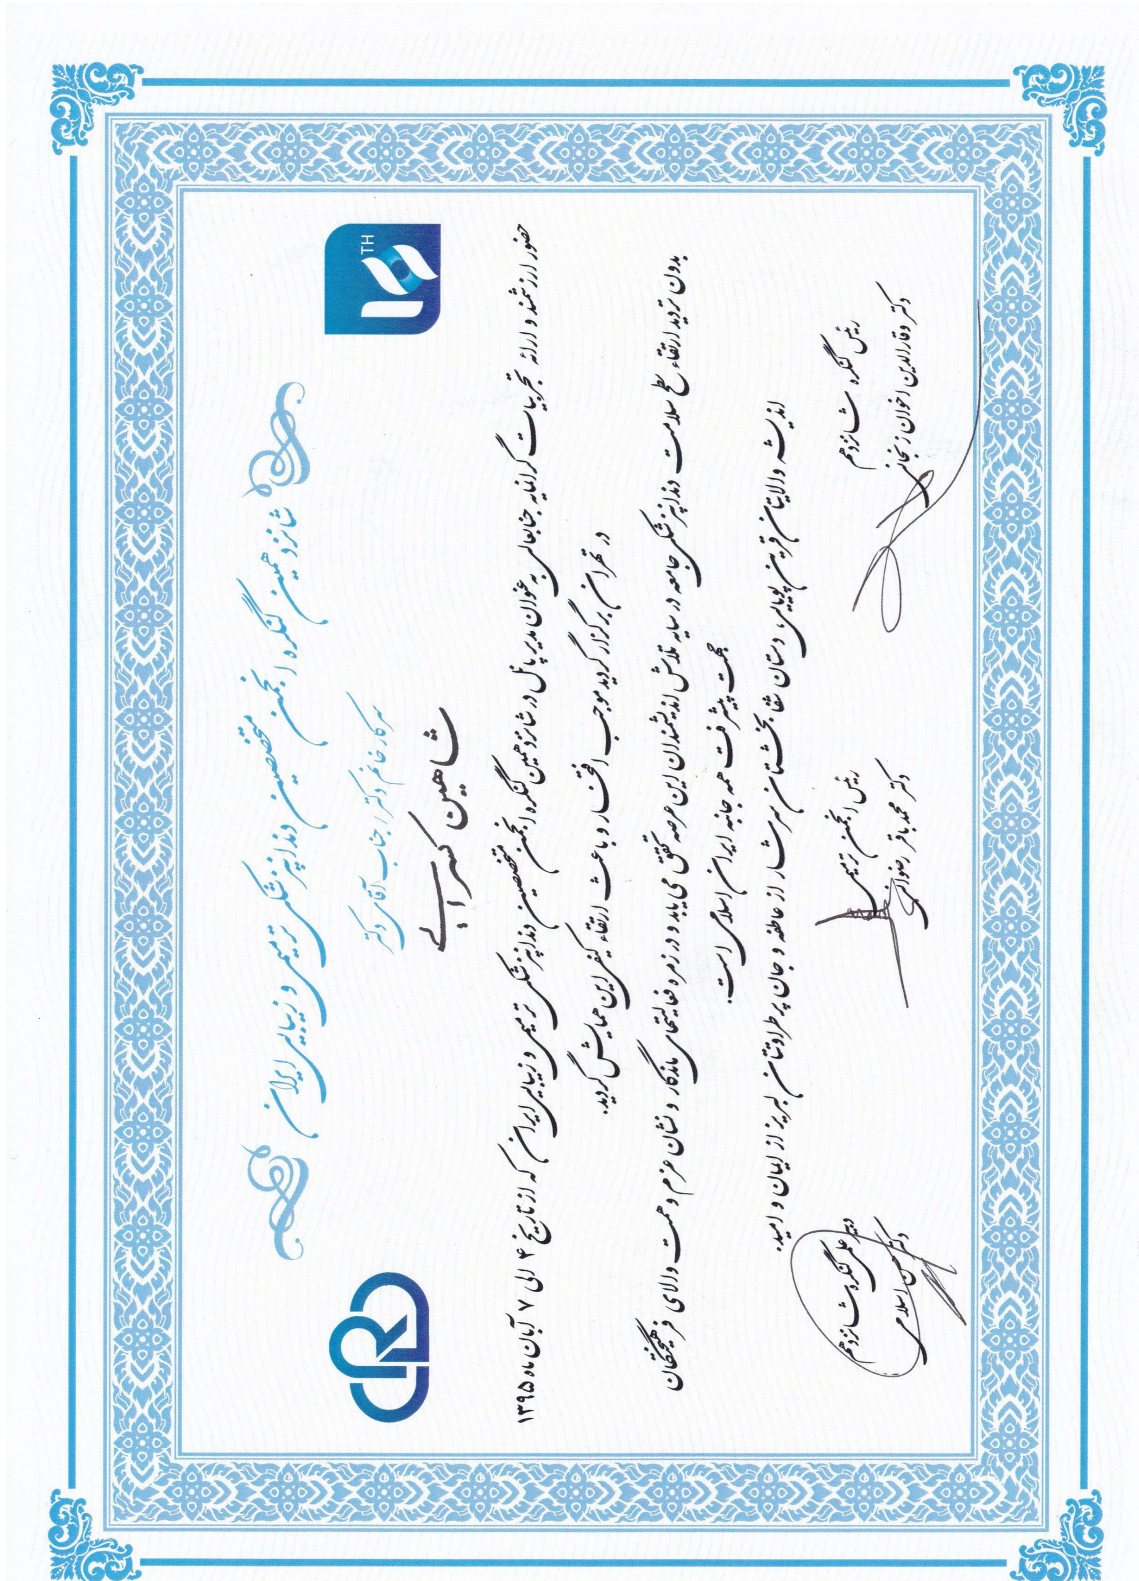 شانزدهمین کنگره انجمن متخصصین دندانپزشکی ترمیمی و زیبایی ایران
16
TH
CRD
سرکار خانم دکتر / جناب آقای دکتر
شاهین کسرایی
حضور ارزشمند و ارائه تجربیات گرانمایه جنابعالی به عنوان مدیر پانل در شانزدهمین کنگره انجمن متخصصین دندانپزشکی ترمیمی و زیبایی ایران که از تاریخ ۴ الی ۷ آبان ماه ۱۳۹۵
در تهران برگزار گردید موجب افتخار و باعث ارتقاء کیفی این همایش گردید.
بدون تردید ارتقاء سطح سلامت دندانپزشکی جامعه در سایه تلاش اندیشمندان این عرصه تحقق می یابد و در زمره فعالیتهای ماندگار و نشان عزم و همت والای فرهیختگان
جهت پیشرفت همه جانبه ایران اسلامی است.
اندیشه والایتان قرین پویایی، دستان شفابخشتان سرشار از عاطفه و جان پر طراوتتان لبریز از ایمان و امید.
رئیس کنگره شانزدهم
دکتر وقارالدین اخوان زنجانی
رئیس انجمن ترمیمی
دکتر محمدباقر رضوانی
دبیر علمی کنگره شانزدهم
دکتر محسن اسلامی